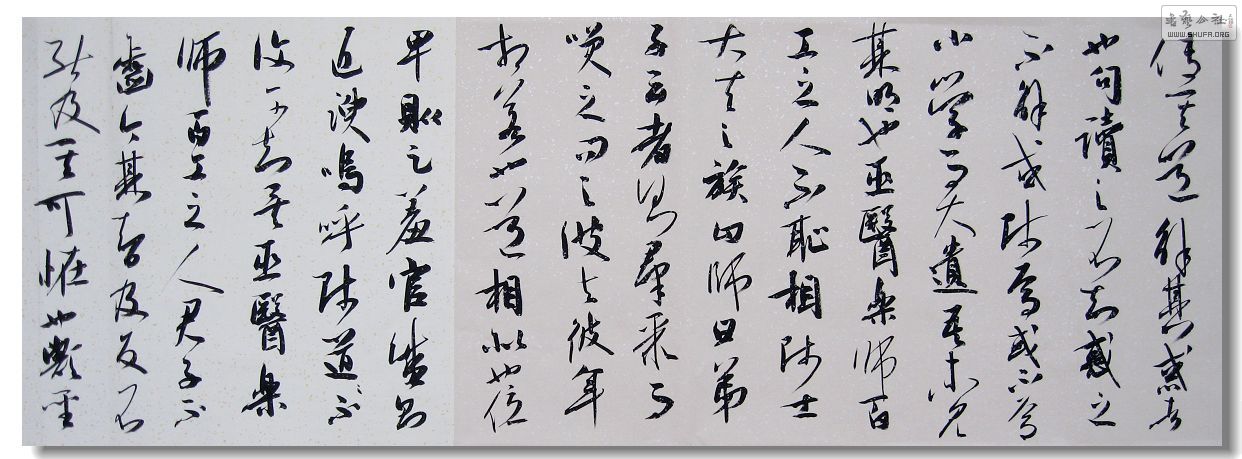 傳其道解其惑者
也句讀之不知惑之
不解或师焉或不焉
小學而大遺吾未見
其明也巫醫樂师百
工之人不恥相师士
大夫之族曰师曰弟
子云者則群聚而
咲之问之彼与彼年
相若也道相似也位
卑則足羞官盛則
近諛嗚呼师道不
復可知矣巫醫樂
师百工之人君子不
齒今其智乃反不
能及其可怪也歟聖
書藝公社
WWW.SHUFA.ORG